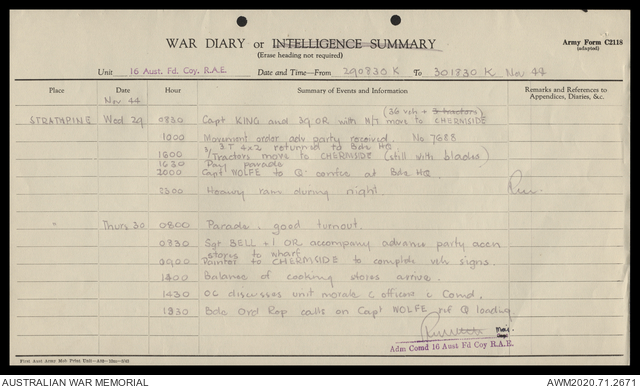 WAR DIARY or INTELLIGENCE SUMMARY
(Erase heading not required)
Army Form C2118
(adapted)
Unit 16 Aust. Fd. Coy. R.A.E. Date and Time—From 290830 K To 301830 K Nov 44
Place Date Hour Summary of Events and Information Remarks and References to Appendices, Diaries, &c.
Nov 44
(36 veh + 3 tractors)
STRATHPINE Wed 29 0830 Capt KING and 39 OR with M/T move to CHERMSIDE
1000 Movement order adv. party received. No 7688
3 T 4x2 returned to Bde HQ
1600 Tractors move to CHERMSIDE (still with blades)
1630 Pay parade
2000 Capt WOLFE to Q conference at Bde HQ
2300 Heavy rain during night.
" Thurs 30 0800 Parade, good turnout.
0830 Sgt BELL + 1 OR accompany advance party accn
stores to wharf
0900 Painter to CHERMSIDE to complete veh signs.
1400 Balance of cooking stores arrive.
1430 OC discusses unit morale c officers i Comd.
1830 Bde Ord Rep calls on Capt WOLFE ref Q loading
Major
Adm Comd 16 Aust Fd Coy R.A.E.
AUSTRALIAN WAR MEMORIAL AWM2020.71.2671